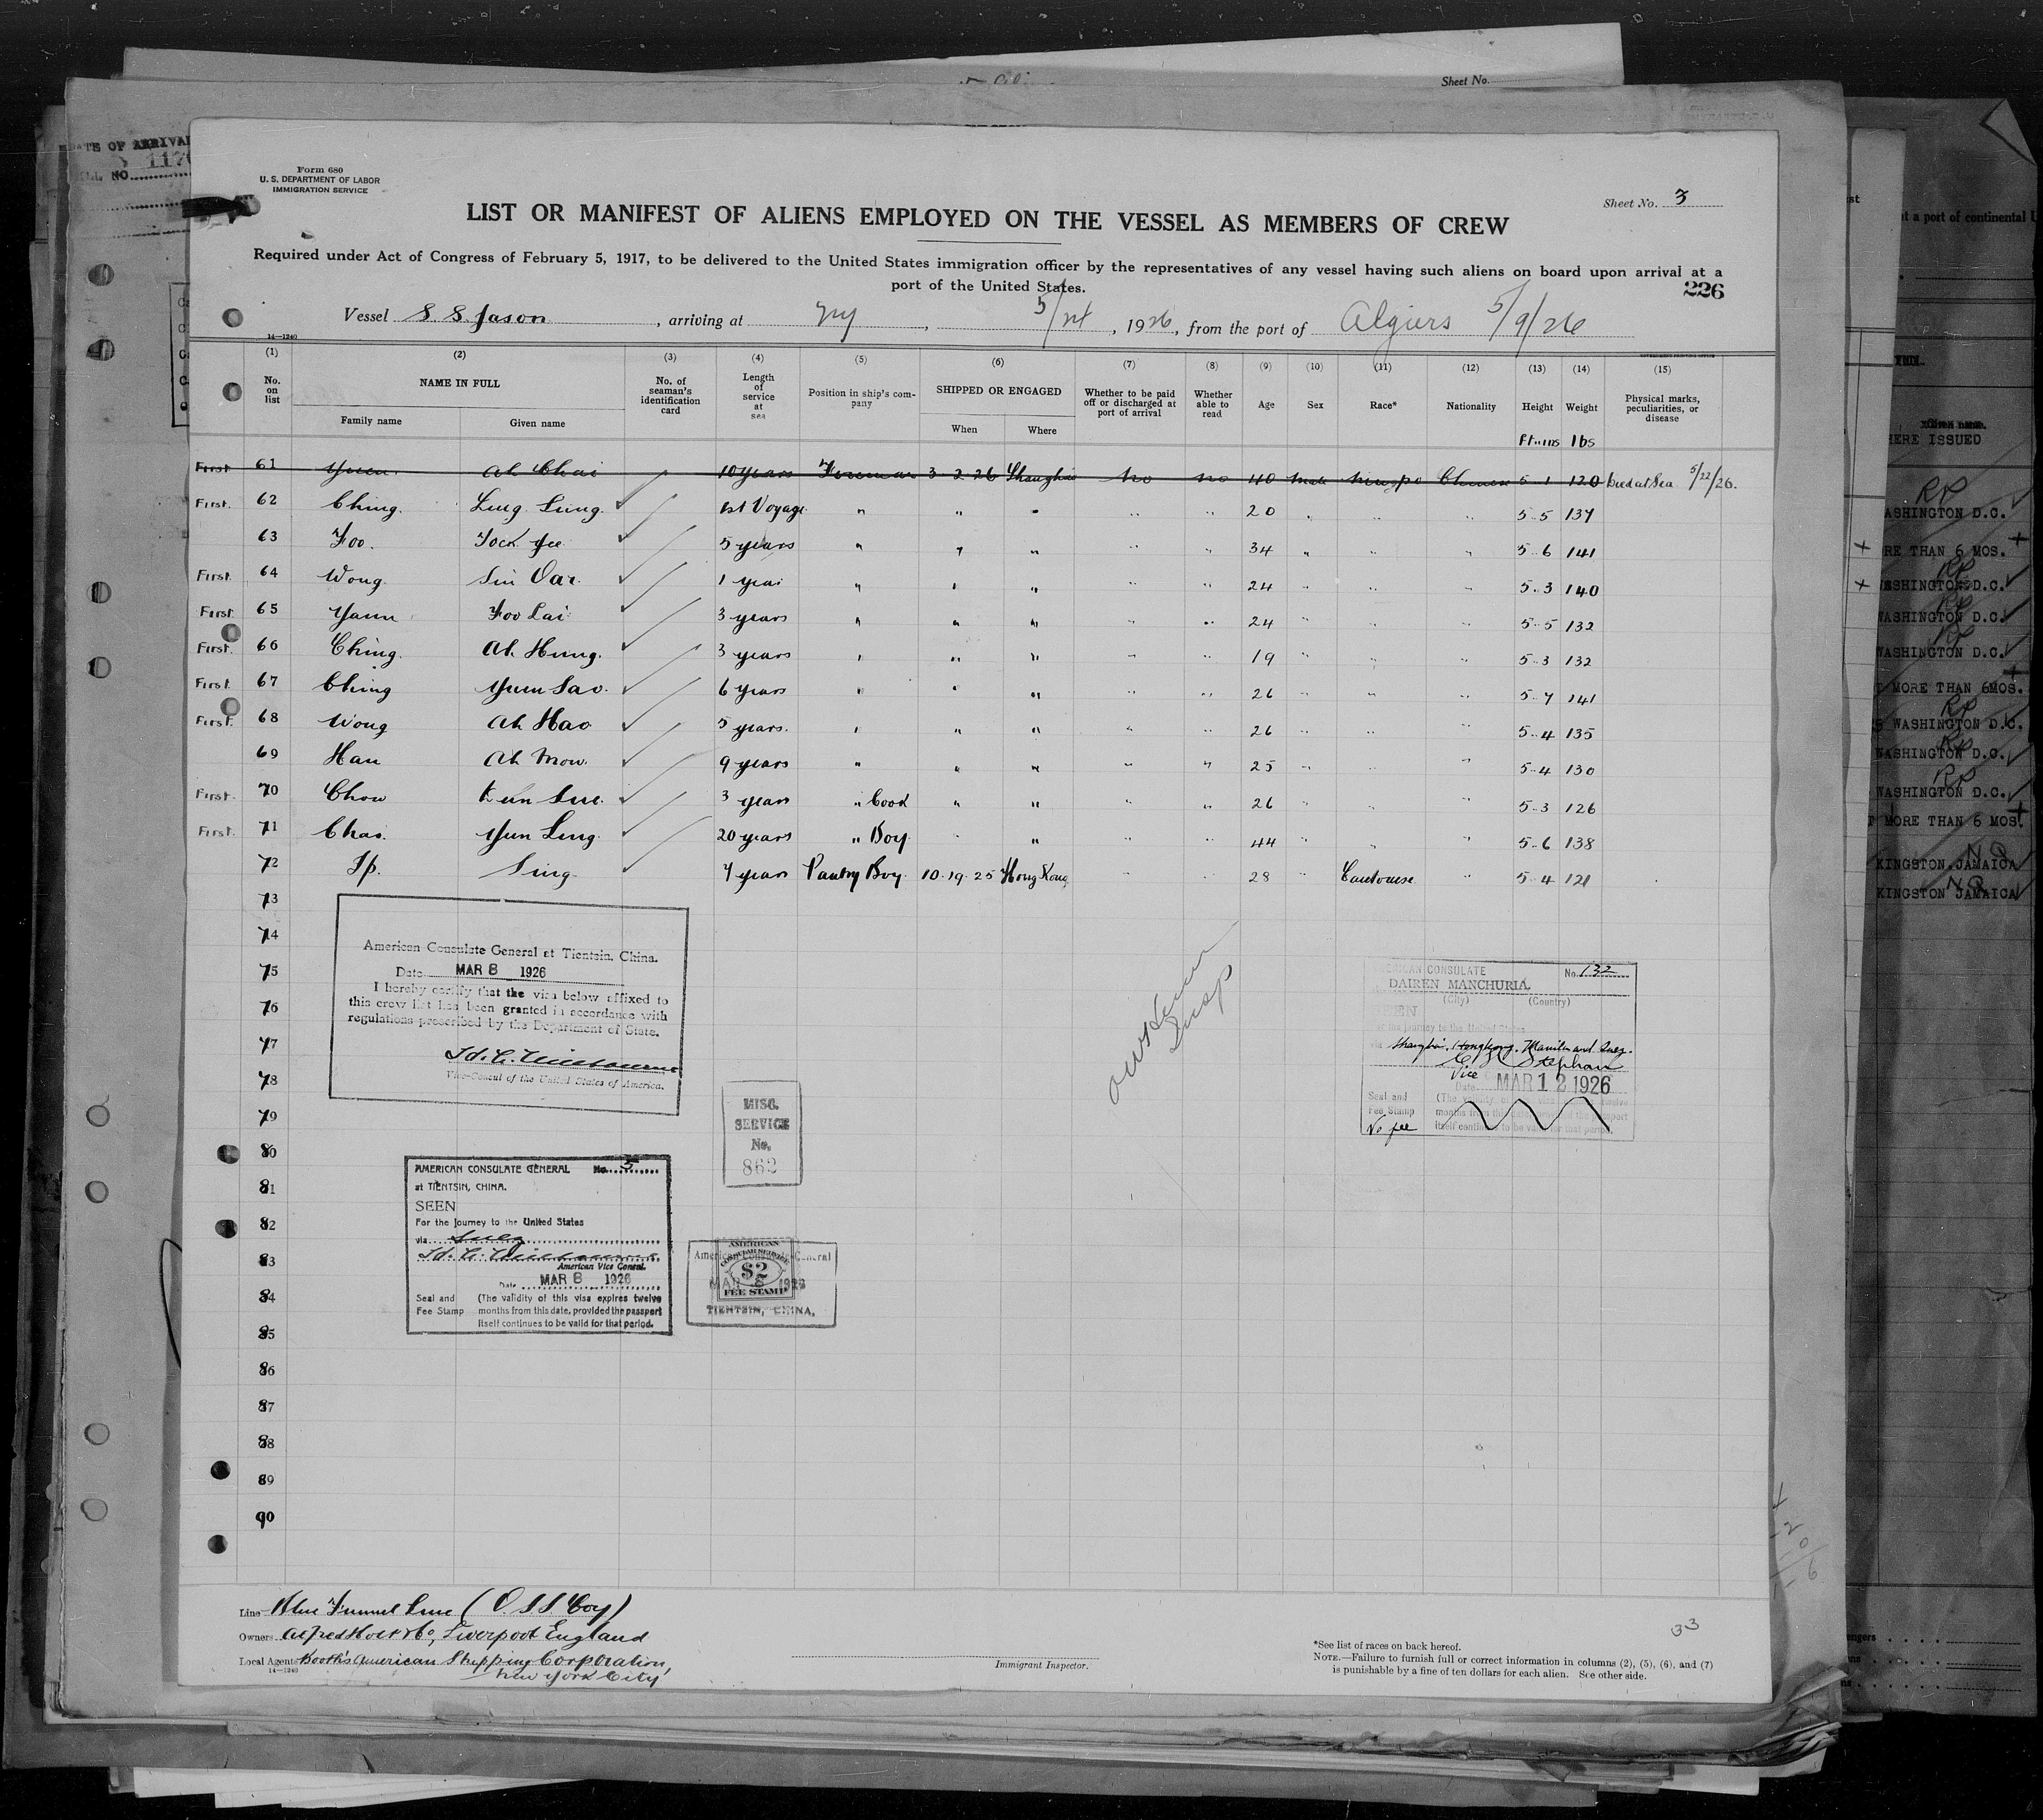 Sheet No.
Form 680
U. S. DEPARTMENT OF LABOR
IMMIGRATION SERVICE
Sheet No. 3
LIST OR MANIFEST OF ALIENS EMPLOYED ON THE VESSEL AS MEMBERS OF CREW
Required under Act of Congress of February 5, 1917, to be delivered to the United States immigration officer by the representatives of any vessel having such aliens on board upon arrival at a
port of the United States.
226
Vessel S. S. Jason, arriving at NY, 5/24, 1926, from the port of Algiers 5/9/26
14—1240
(1) (2) (3) (4) (5) (6) (7) (8) (9) (10) (11) (12) (13) (14) (15)
No. on list NAME IN FULL No. of seaman's identification card Length of service at sea Position in ship's company SHIPPED OR ENGAGED Whether to be paid off or discharged at port of arrival Whether able to read Age Sex Race* Nationality Height Weight Physical marks, peculiarities, or disease
Family name Given name When Where
Ft. ins lbs
First 61 Yuen Ah Chai 10 years Fireman 3 2 26 Shanghai No no 40 Male Ningpo Chinese 5 1 120 Died at Sea 5/22/26.
First. 62 Ching. Ling Sung. 1st Voyage " " " " " 20 " " " 5 5 137
63 Foo. Tock Yee 5 years " " " " " 34 " " " 5 6 141
First. 64 Wong. Sin Oai. 1 year " " " " " 24 " " " 5 3 140
First. 65 Yaun Foo Lai 3 years " " " " " 24 " " " 5 5 132
First. 66 Ching. Ah Hung. 3 years " " " " " 19 " " " 5 3 132
First. 67 Ching Yum Sao. 6 years " " " " " 26 " " " 5 7 141
First. 68 Wong Ah Hao 5 years. " " " " " 26 " " " 5 4 135
69 Han Ah Mow. 9 years " " " " " 25 " " " 5 4 130
First. 70 Chow Kun Sue. 3 years " Cook " " " " 26 " " " 5 3 126
First. 71 Chai. Yun Ling. 20 years " Boy " " " " 44 " " " 5 6 138
72 Ip. Sing 7 years Pantry Boy 10.19.25 Hong Kong " " 28 " Cantonese " 5 4 121
73
74
75
76
77
78
79
80
81
82
83
84
85
86
87
88
89
90
American Consulate General at Tientsin, China.
Date MAR 8 1926
I hereby certify that the visa below affixed to
this crew list has been granted in accordance with
regulations prescribed by the Department of State.
Vice-Consul of the United States of America.
MISC.
SERVICE
No.
862
AMERICAN CONSULATE GENERAL No. 5
at TIENTSIN, CHINA.
SEEN
For the journey to the United States
via Suez
American Vice Consul.
Date MAR 8 1926
Seal and Fee Stamp (The validity of this visa expires twelve
months from this date, provided the passport
itself continues to be valid for that period.
American Consulate General
MAR 8 1926
TIENTSIN, CHINA.
AMERICAN
CONSULAR SERVICE
$2
FEE STAMP
Insp
AMERICAN CONSULATE No. 132
DAIREN MANCHURIA.
(City) (Country)
SEEN
For the journey to the United States
via Shanghai, Hongkong, Manila and Suez.
Stephan
Vice
Date MAR 12 1926
Seal and
Fee Stamp
No fee
(The validity of this visa expires twelve
months from this date provided the passport
itself continues to be valid for that period.
Line Blue Funnel Line (O. S S Coy)
Owners Alfred Holt & Co, Liverpool England
Local Agents Booth's American Shipping Corporation,
New York City
14—1240
Immigrant Inspector.
33
*See list of races on back hereof.
NOTE.—Failure to furnish full or correct information in columns (2), (5), (6), and (7)
is punishable by a fine of ten dollars for each alien. See other side.
DATE OF ARRIVAL
1170
t a port of continental U
Given name.
HERE ISSUED
WASHINGTON D.C.
RE THAN 6 MOS.
WASHINGTON D.C.
WASHINGTON D.C.
WASHINGTON D.C.
T MORE THAN 6MOS.
WASHINGTON D.C.
WASHINGTON D.C.
WASHINGTON D.C.
T MORE THAN 6 MOS.
KINGSTON JAMAICA
KINGSTON JAMAICA